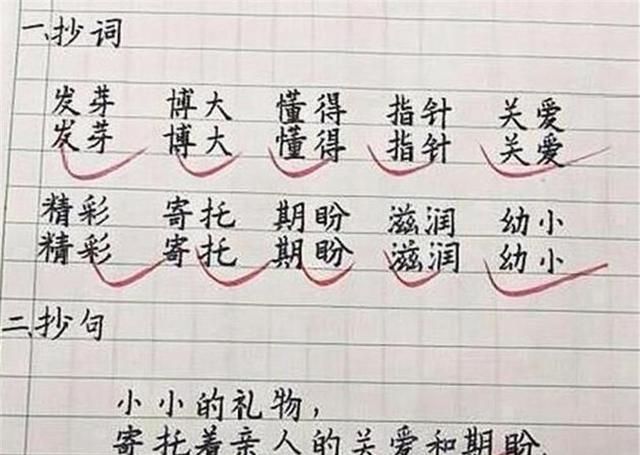 一、抄词
发芽 博大 懂得 指针 关爱
发芽 博大 懂得 指针 关爱
精彩 寄托 期盼 滋润 幼小
精彩 寄托 期盼 滋润 幼小
二、抄句
小小的礼物，
寄托着亲人的关爱和期盼